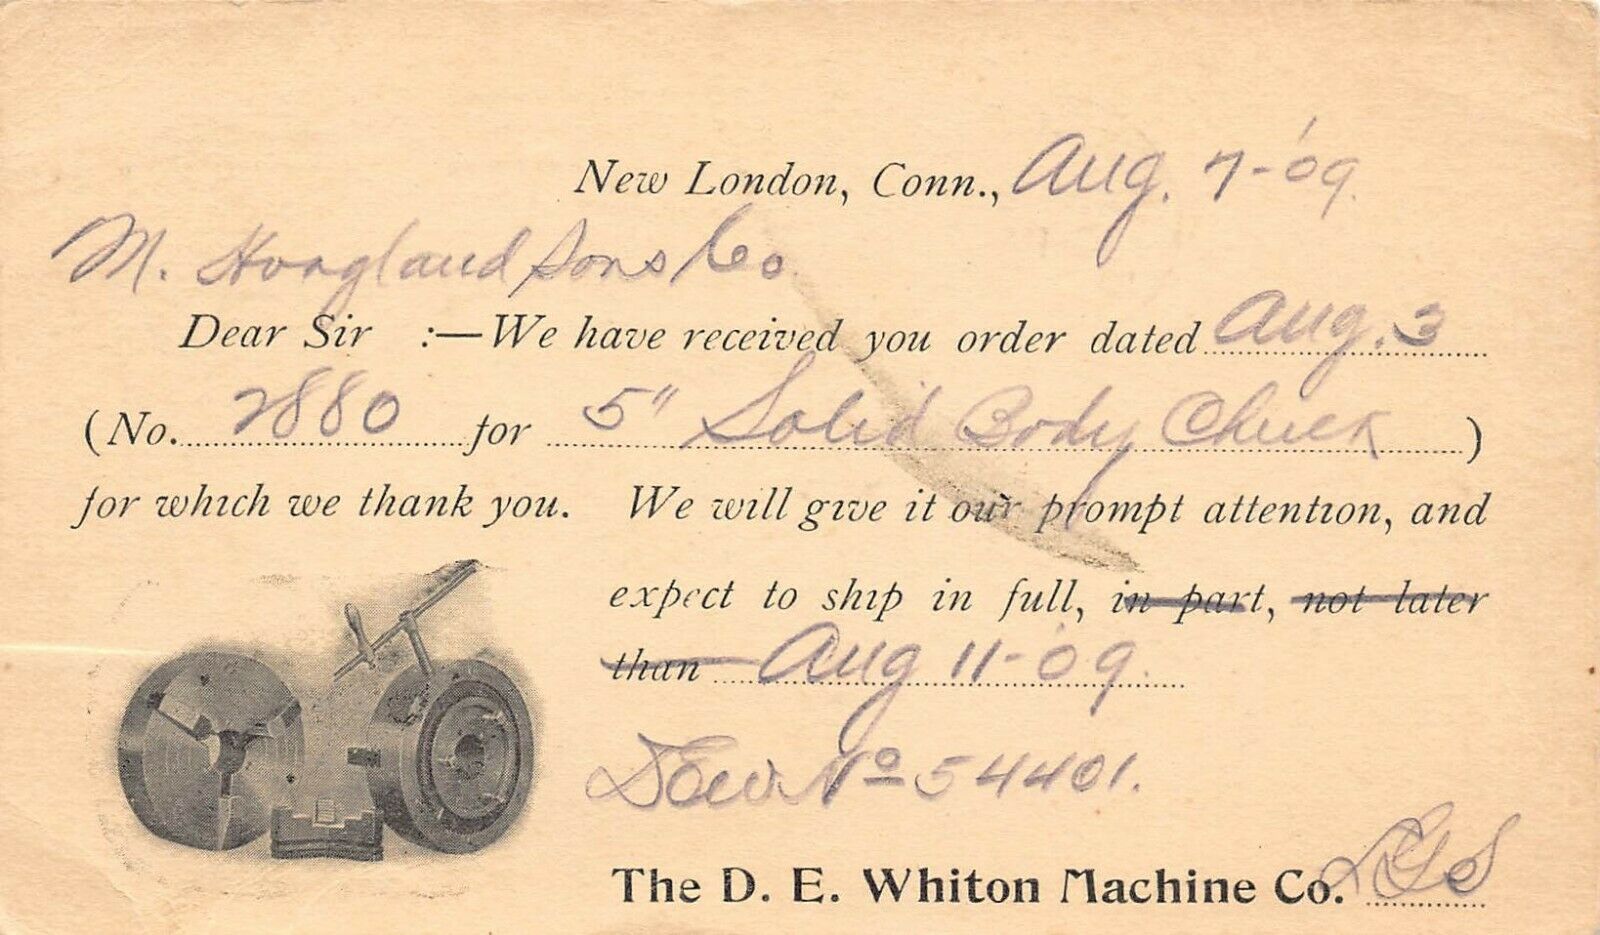 New London, Conn., Aug. 7-'09.
M. Hoagland Sons Co.
Dear Sir :—We have received you order dated Aug. 3
(No. 2880 for 5" Solid Body Chuck)
for which we thank you. We will give it our prompt attention, and
expect to ship in full, in part, not later
than Aug 11-09.
No 54401.
The D. E. Whiton Machine Co.